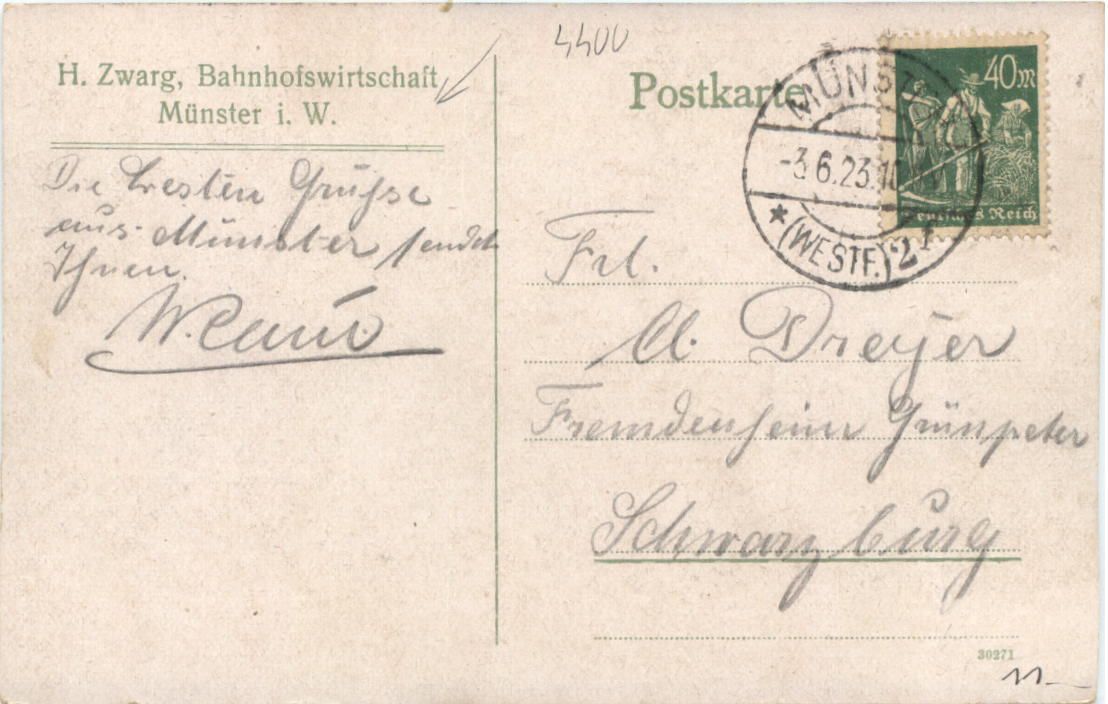 4400
H. Zwarg, Bahnhofswirtschaft
Münster i. W.
Die besten Grüße
aus Münster sendet
Ihnen.
Postkarte
40M
Deutsches Reich
MÜNSTER
-3.6.23.10
* (WESTF.) 2f
Frl.
A. Dreyer
Fremdenheim Grünpeter
Schwarzburg
30271
11-